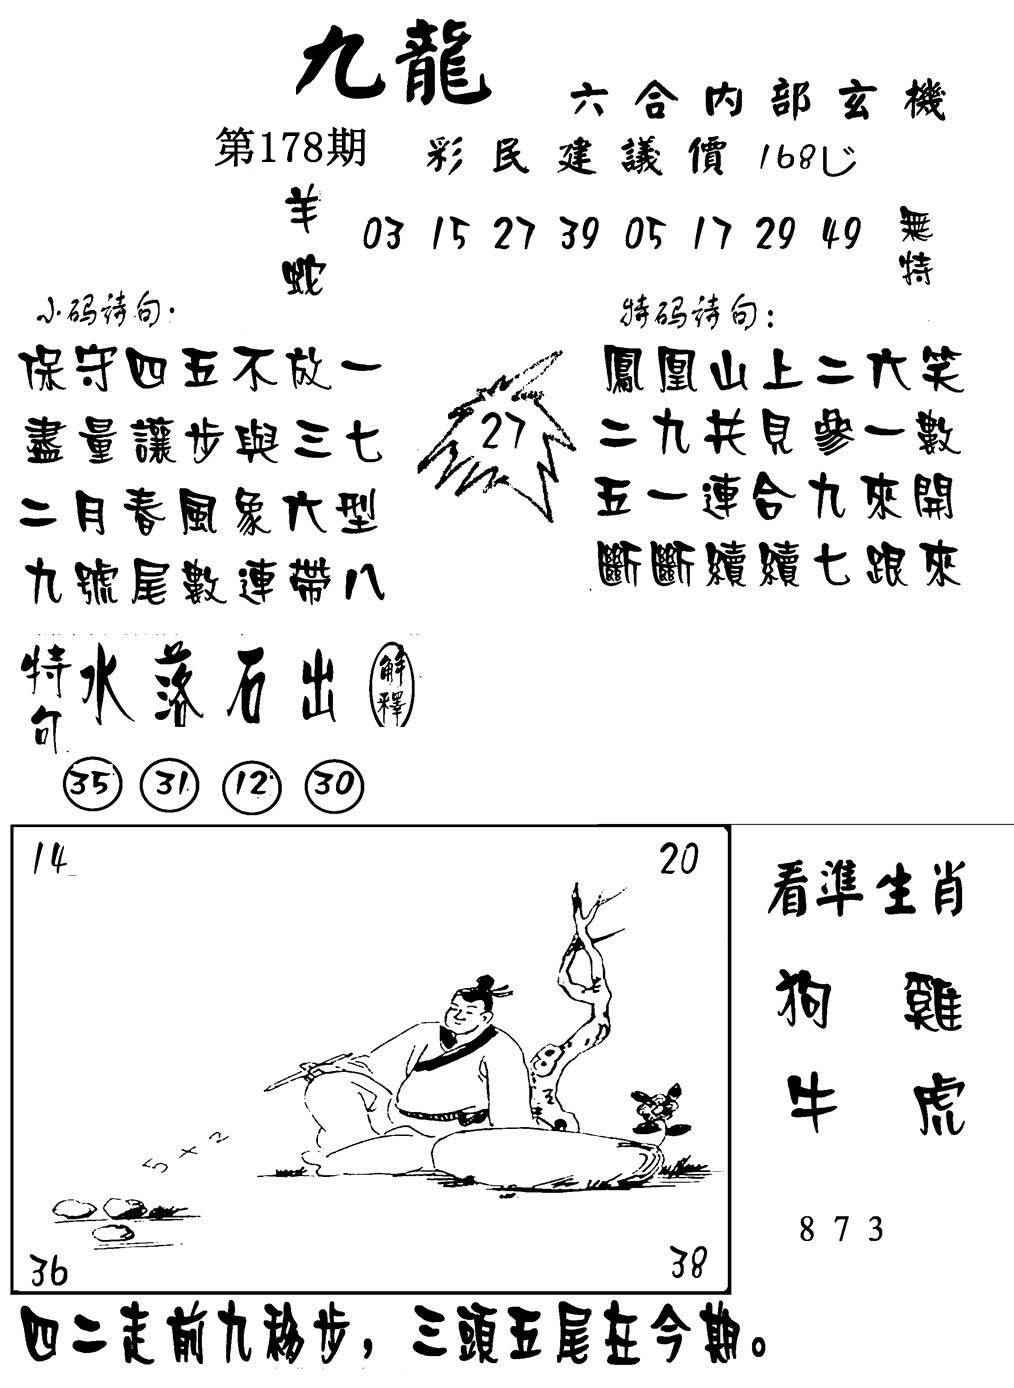 九龍
六合内部玄機
第178期
彩民建議價168じ
羊 03 15 27 39 05 17 29 49 無
蛇 特
小码诗句·
保守四五不放一
盡量讓步與三七
二月春風象六型
九號尾數連帶八
27
特码诗句：
鳳凰山上二六笑
二九共見參一數
五一連合九來開
斷斷續續七跟來
特句 水落石出 解釋
35 31 12 30
14 20
5×2
36 38
看準生肖
狗 雞
牛 虎
873
四二走前九移步，三頭五尾在今期。